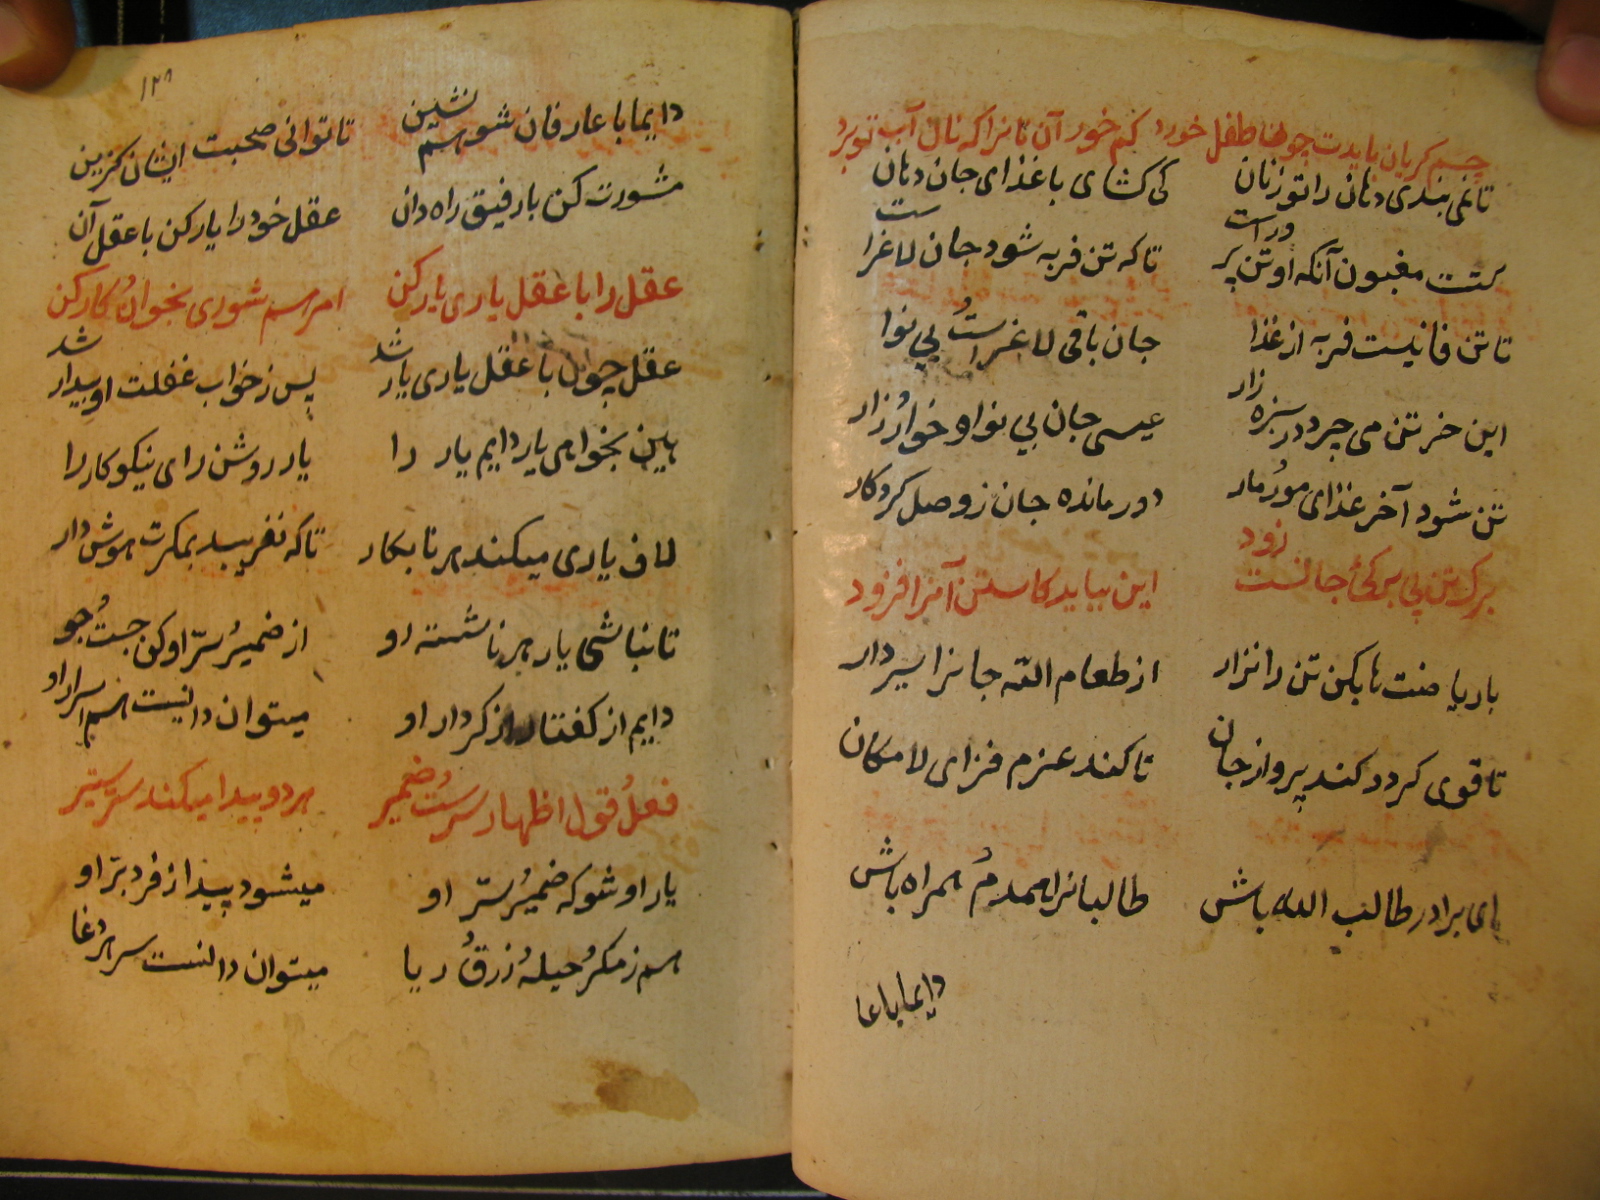 چشم گریان بایدت چون طفل خورد کم خور آن نانرا که نان آب تو برد
تا نمی بندی دهان را تو ز نان کی کشای با غذای جان دهان
کشت مغبون آنکه او تن پرور است تا که تن فربه شود جان لاغر است
تا تن فانیست فربه از غذا جان باقی لاغر است و بی نوا
این خر تن می چرد در سبزه زار عیسی جان بی نوا و خوار و زار
تن شود آخر غذای مور و مار دور مانده جان ز وصل کردکار
برک تن بی برکئ جانست زود این بباید کاستن آنرا فزود
با ریاضت ها بکن تن را نزار از طعام الله جانرا سیر دار
تا قوی کردد کند پرواز جان تا کند عزم فزای لامکان
ای برادر طالب الله باش طالبانرا همدم و همراه باش
دایما با عا
۱۲۸
دایما با عارفان شو هم نشین تا توانی صحبت ایشان کزین
مشورت کن با رفیق راه دان عقل خود را یار کن با عقل آن
عقل را با عقل یاری یار کن امرهم شوری بخوان و کار کن
عقل چون با عقل یاری یار شد پس ز خواب غفلت او بیدار شد
هین بخواهی یار دایم یار را یار روشن رای نیکو کار را
لاف یاری میکند هر نابکار تا که نفریبد بمکرت هوش دار
تا نباشی یار هر ناشسته رو از ضمیر و سرّ او کن جست و جو
دایم از کفتار از کردار او میتوان دانست هم اسرار او
فعل و قول اظهار سرست و ضمیر هر دو پیدا میکند سر ستیر
یار او شو که ضمیر و سرّ او میشود پیدا از فرد برّ او
هم ز مکر و حیله و زرق و ریا میتوان دانست سر هر دغا